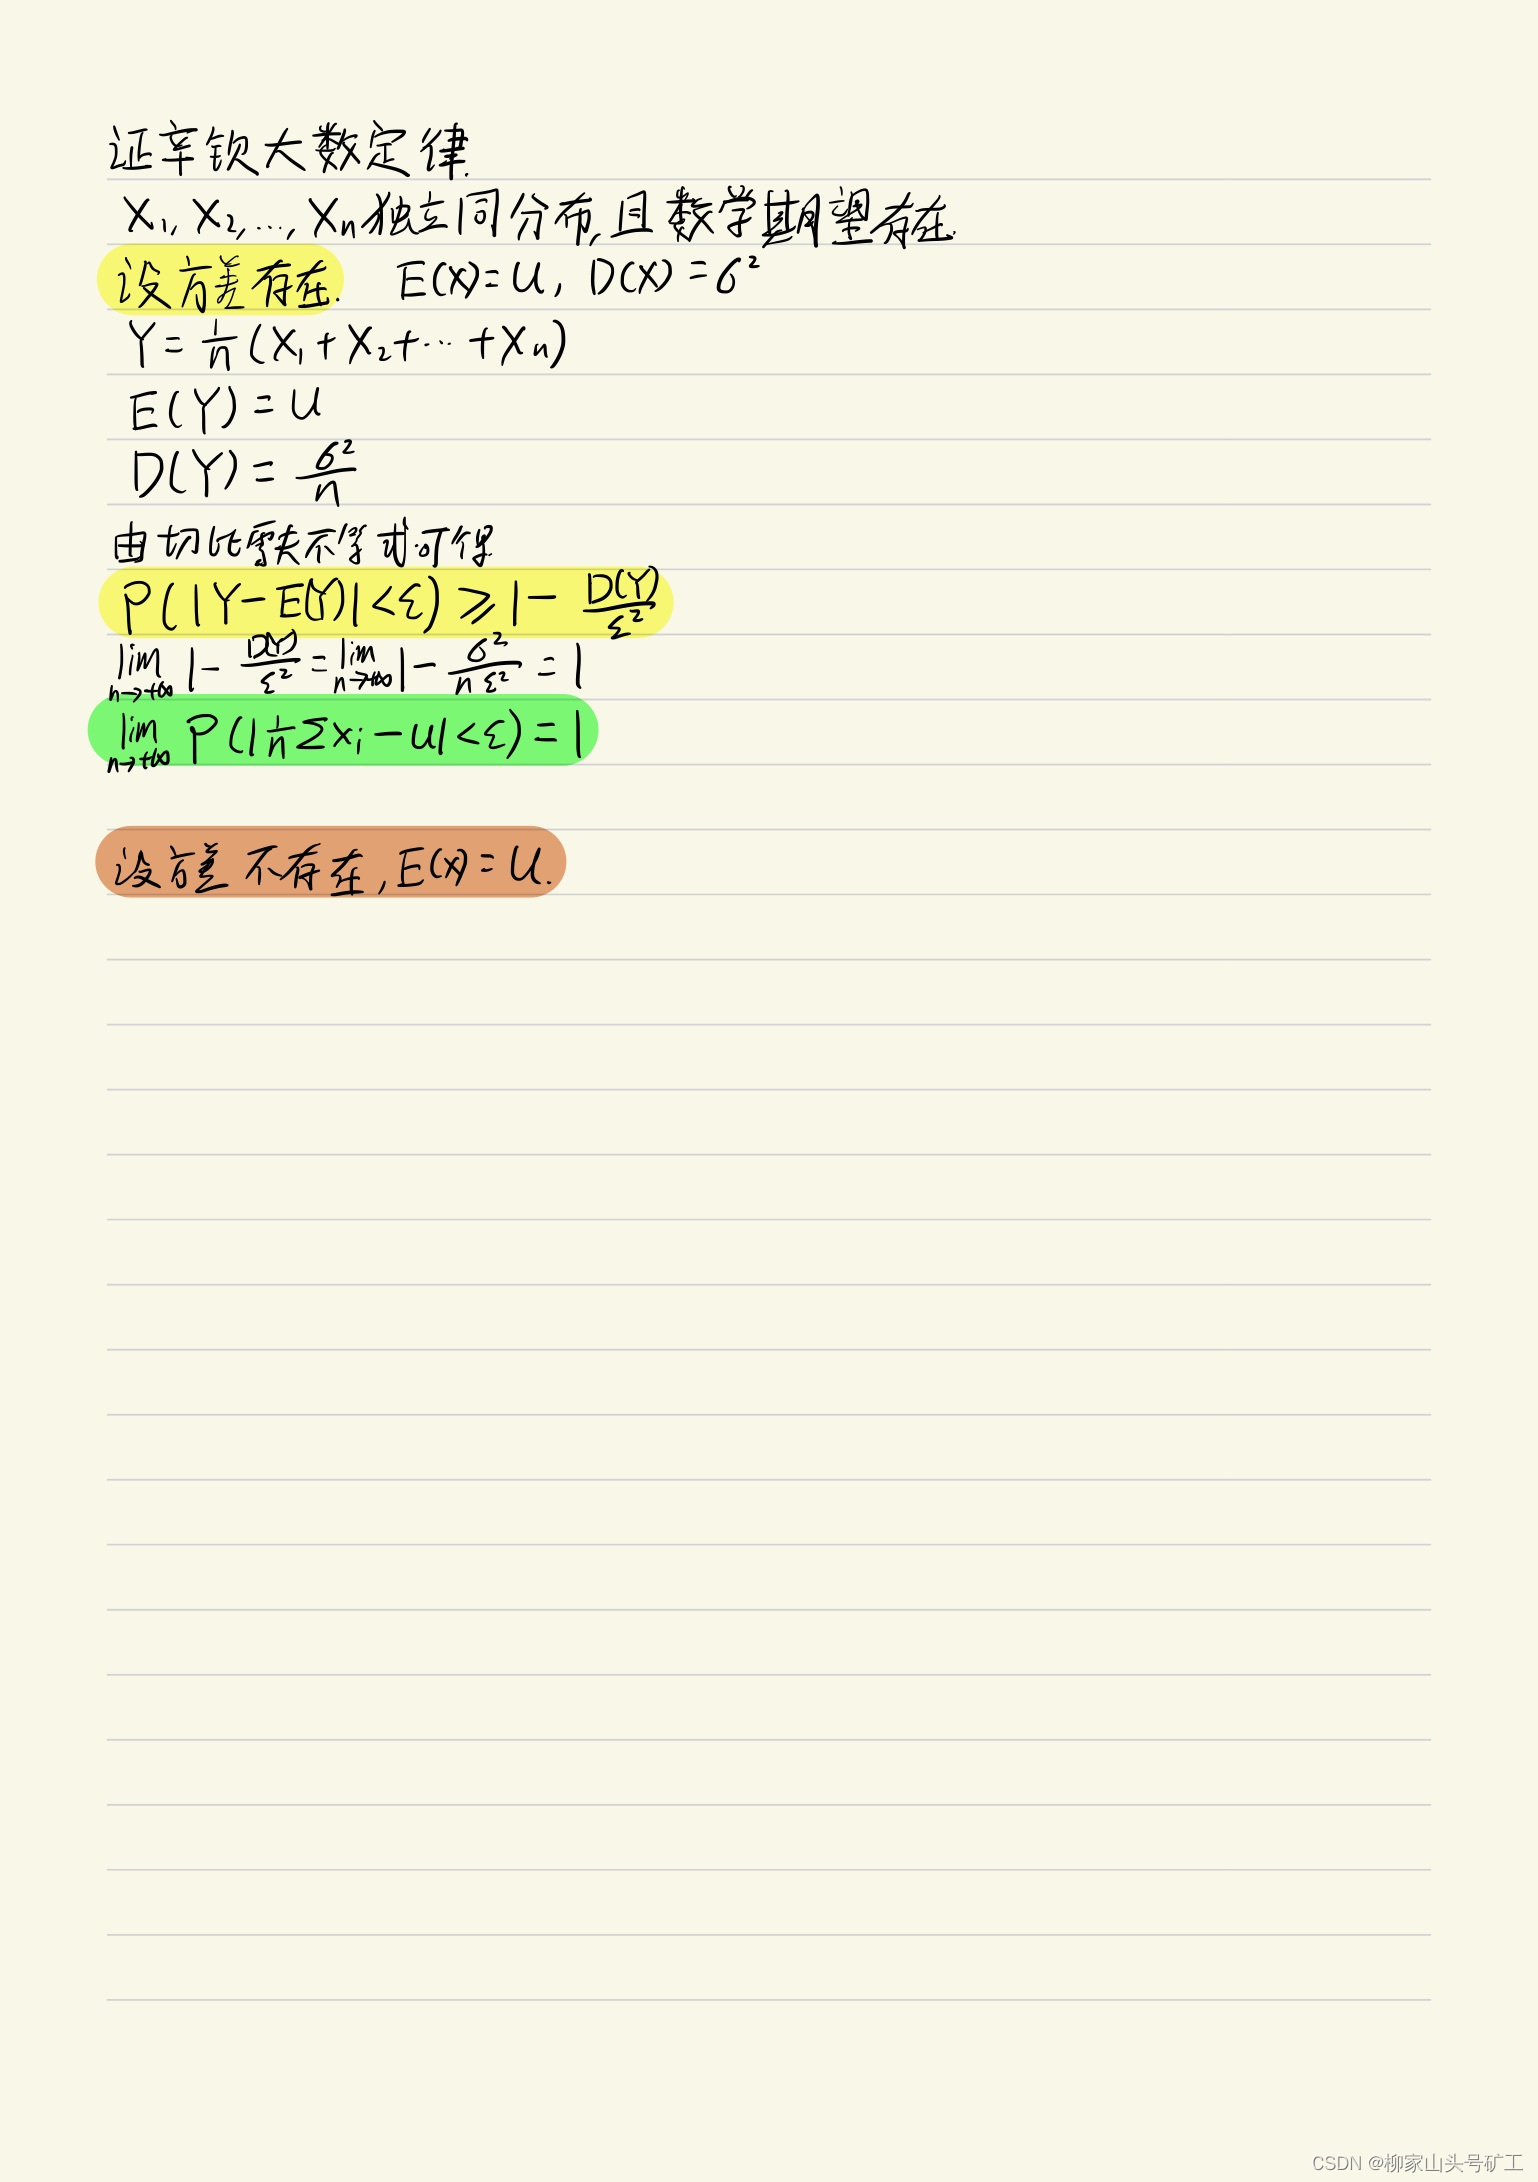 证辛钦大数定律.
X₁, X₂, ..., Xₙ独立同分布,且数学期望存在.
设方差存在. E(X)=u, D(X)=σ²
Y=1/n(X₁+X₂+...+Xₙ)
E(Y)=u
D(Y)=σ²/n
由切比雪夫不等式可得
P(|Y-E(Y)|<ε)≥1-D(Y)/ε²
lim n→+∞ 1-D(Y)/ε²=lim n→+∞ 1-σ²/nε²=1
lim n→+∞ P(|1/n Σxᵢ-u|<ε)=1
设方差不存在,E(x)=u.
CSDN @柳家山头号矿工